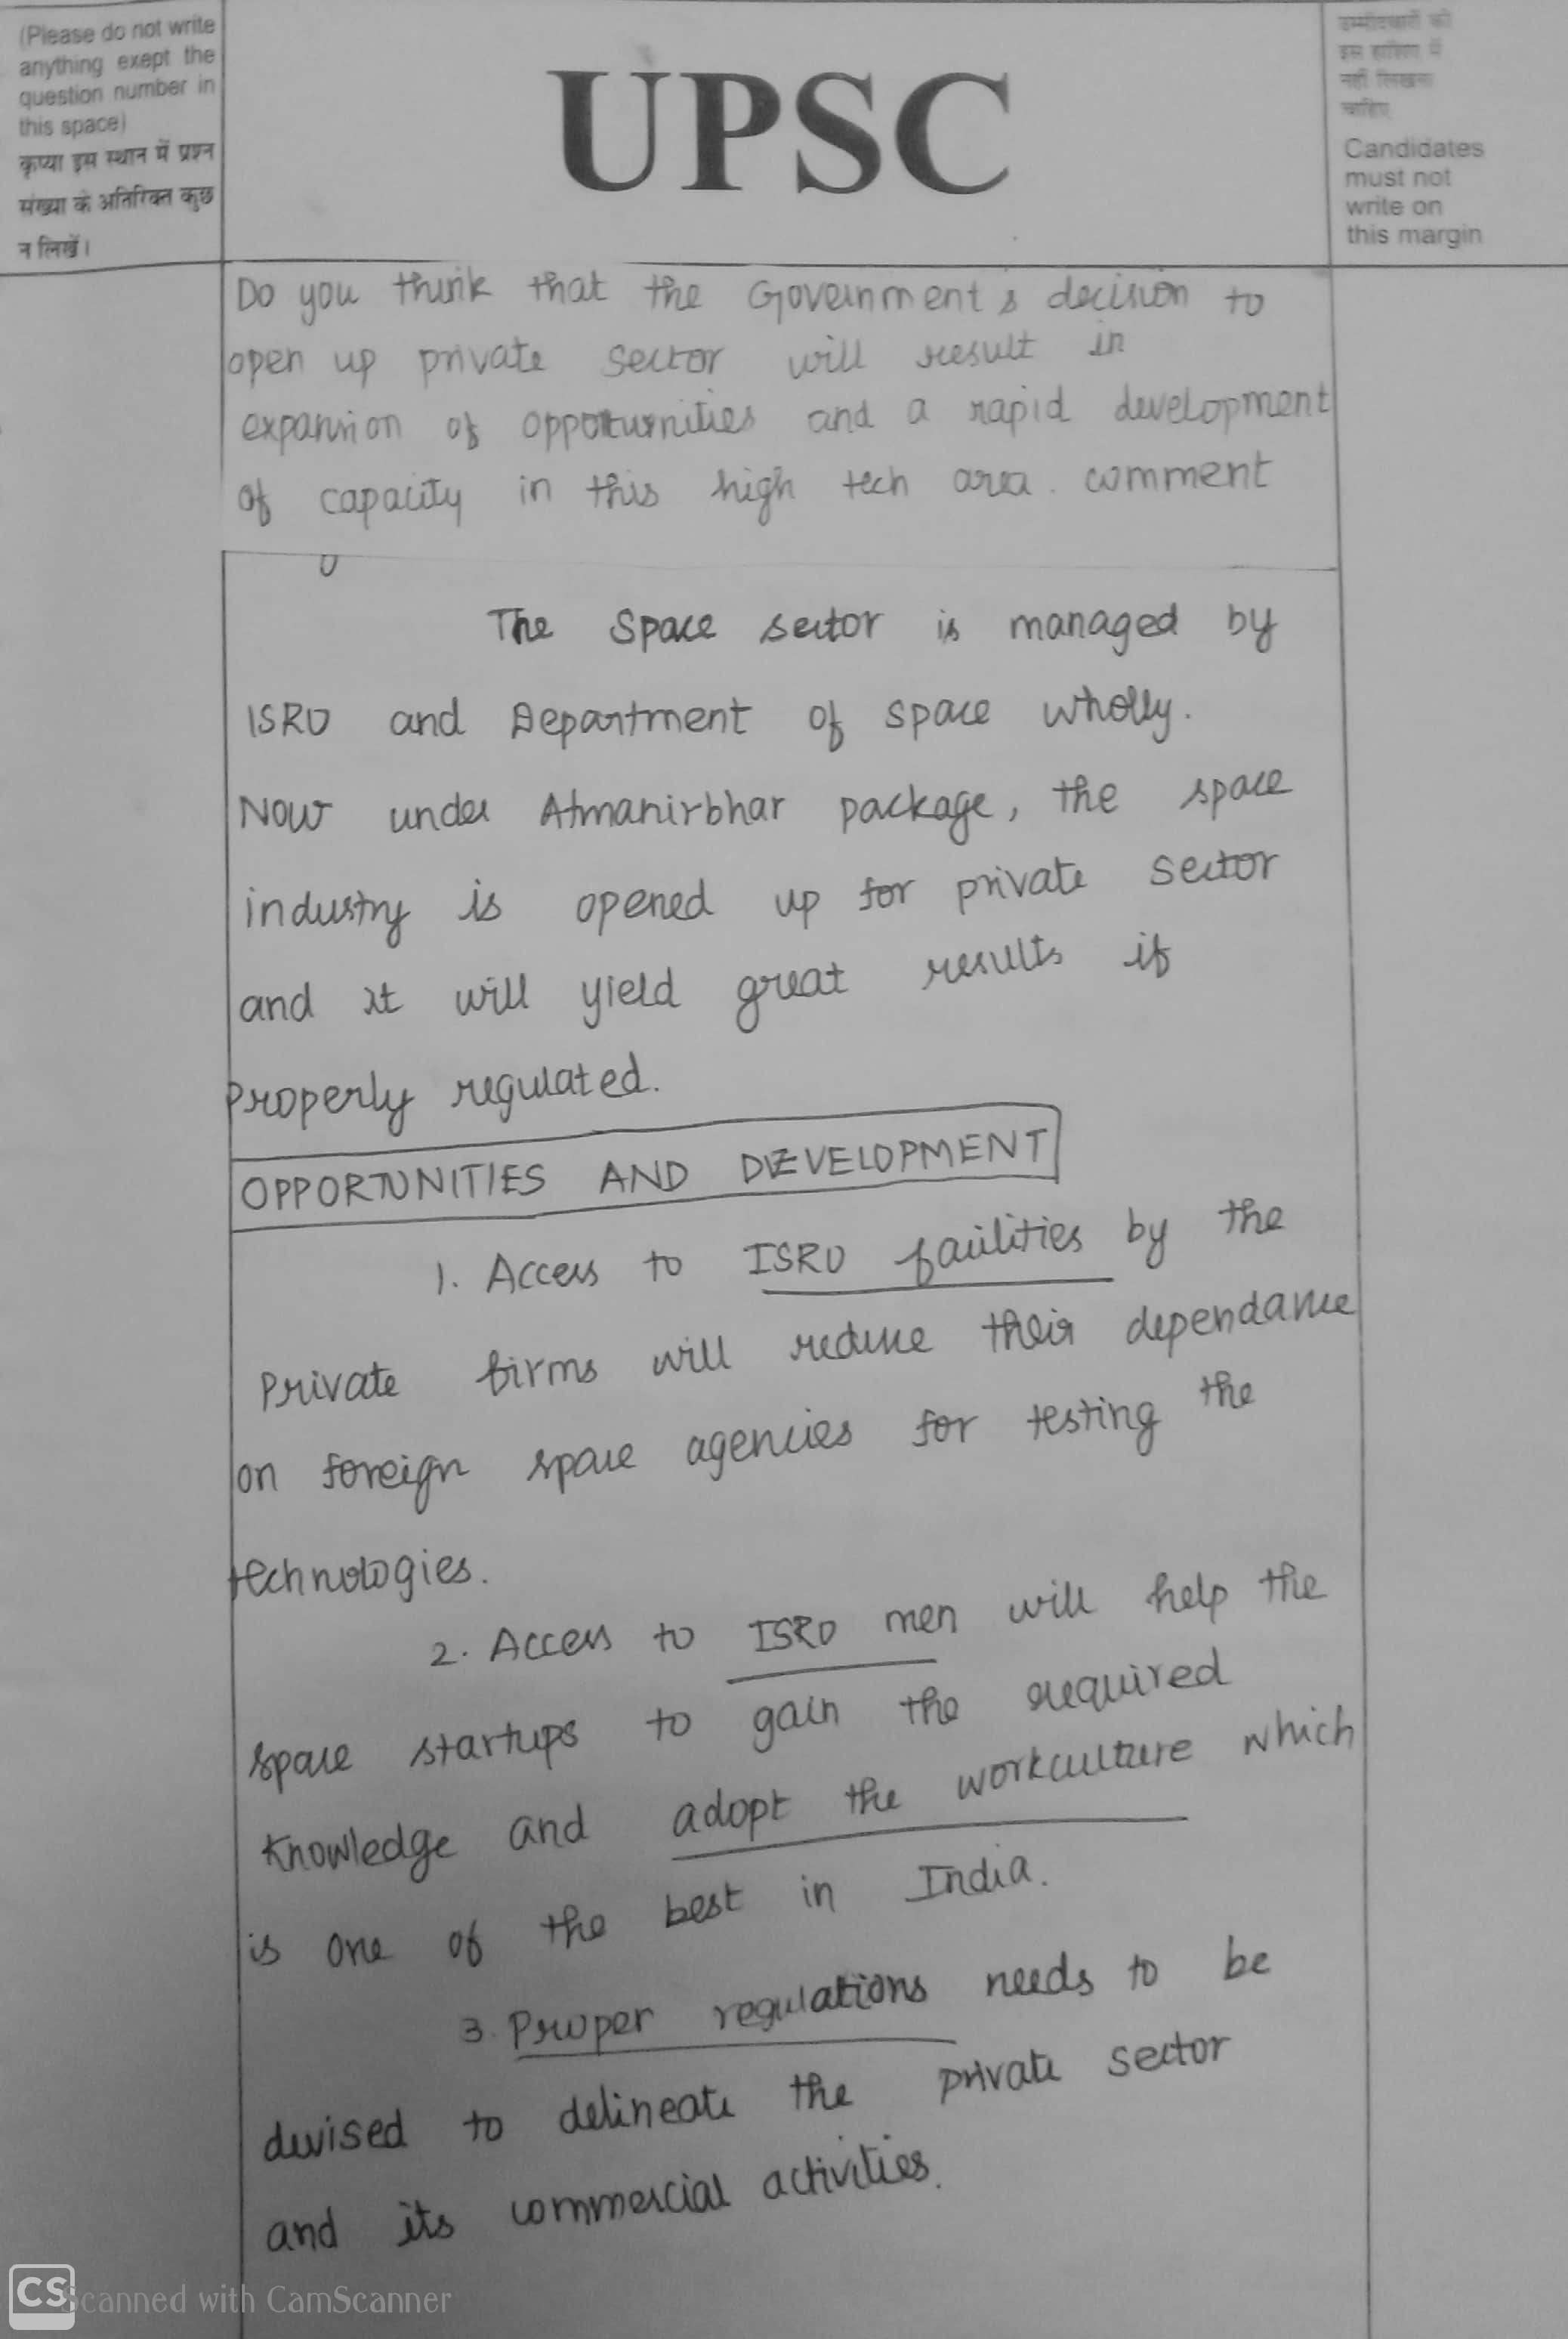 (Please do not write
anything exept the
question number in
this space)
कृप्या इस स्थान में प्रश्न
संख्या के अतिरिक्त कुछ
न लिखें।
UPSC
उम्मीदवारों को
इस हाशिए में
नहीं लिखना
चाहिए
Candidates
must not
write on
this margin
Do you think that the Government's decision to
open up private sector will result in
expansion of opportunities and a rapid development
of capacity in this high tech area. comment
The Space sector is managed by
ISRO and Department of space wholly.
Now under Atmanirbhar package, the space
industry is opened up for private sector
and it will yield great results if
properly regulated.
OPPORTUNITIES AND DEVELOPMENT
1. Access to ISRO facilities by the
private firms will reduce their dependance
on foreign space agencies for testing the
technologies.
2. Access to ISRO men will help the
space startups to gain the required
knowledge and adopt the workculture which
is one of the best in India.
3. Proper regulations needs to be
devised to delineate the private sector
and its commercial activities.
CS Scanned with CamScanner